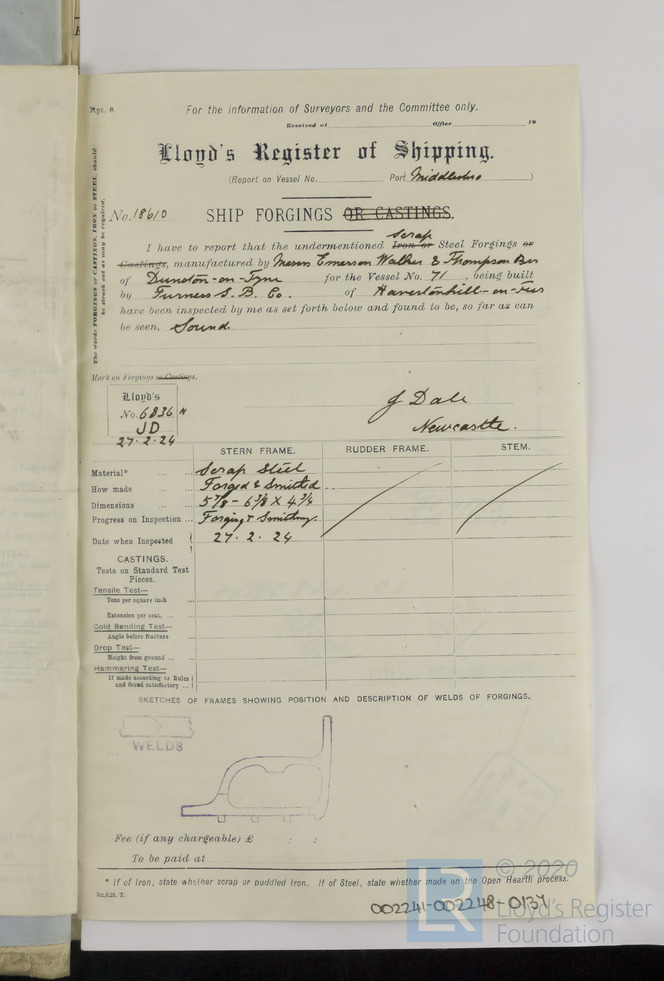 Rpt. 6.
For the information of Surveyors and the Committee only.
Received at Office 19
Lloyd's Register of Shipping.
(Report on Vessel No. Port Middlesbro )
The words FORGINGS or CASTINGS, IRON or STEEL, should be struck out as may be required.
No. 18610 SHIP FORGINGS OR CASTINGS.
Scrap
I have to report that the undermentioned Iron or Steel Forgings or
Castings, manufactured by Messrs Emerson Walker & Thompson Bros
of Dunston-on-Tyne for the Vessel No. 71, being built
by Furness S. B. Co. of Haverton hill-on-Tees
have been inspected by me as set forth below and found to be, so far as can
be seen, Sound.
Mark on Forgings or Castings.
Lloyd's
No. 6836 N
JD
27.2.24
J Dale
Newcastle.
STERN FRAME. RUDDER FRAME. STEM.
Material* Scrap Steel
How made Forged & Smithed
Dimensions 5 7/8 - 6 3/8 X 4 3/4
Progress on Inspection Forging & Smithing.
Date when Inspected 27.2.24
CASTINGS.
Tests on Standard Test
Pieces.
Tensile Test—
Tons per square inch
Extension per cent.
Cold Bending Test—
Angle before fracture
Drop Test—
Height from ground
Hammering Test—
If made according to Rules
and found satisfactory
SKETCHES OF FRAMES SHOWING POSITION AND DESCRIPTION OF WELDS OF FORGINGS.
WELDS
Fee (if any chargeable) £ : :
To be paid at
* If of Iron, state whether scrap or puddled Iron. If of Steel, state whether made on the Open Hearth process.
002241-002248-0137
© 2020
LR
Lloyd's Register
Foundation